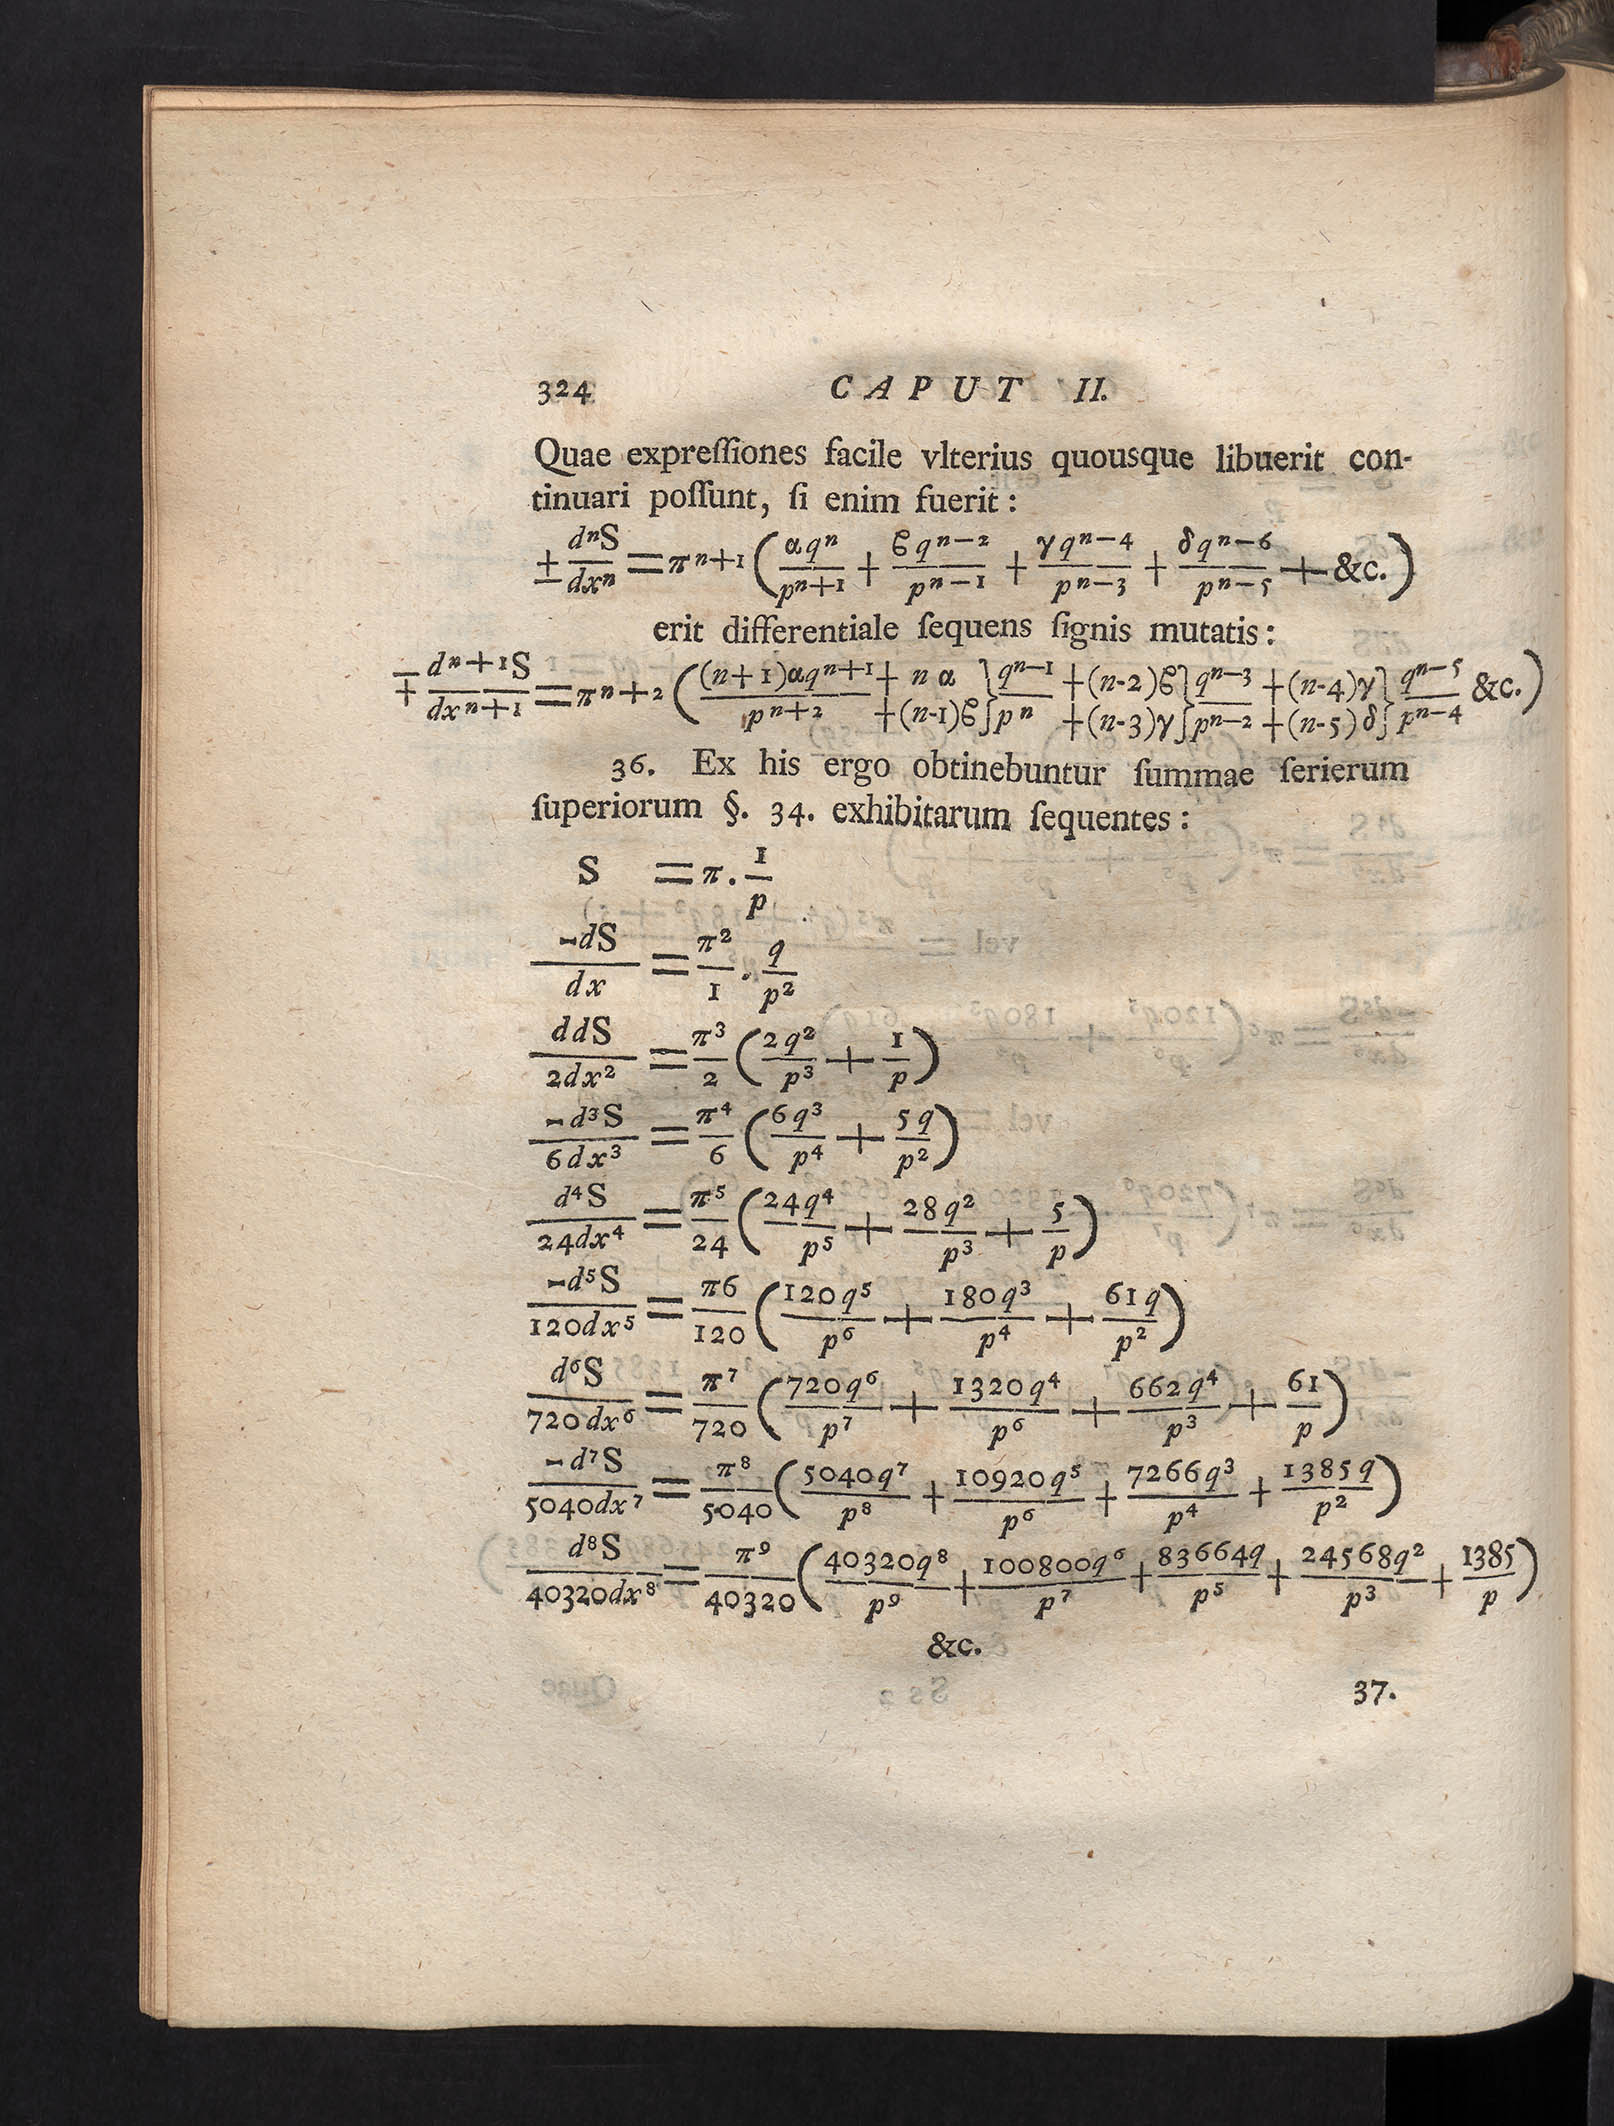 324 CAPUT II.
Quae expreſſiones facile vlterius quousque libuerit con-
tinuari poſſunt, ſi enim fuerit :
± dⁿS/dxⁿ = πⁿ⁺¹ (αqⁿ/pⁿ⁺¹ + ϐqⁿ⁻²/pⁿ⁻¹ + γqⁿ⁻⁴/pⁿ⁻³ + δqⁿ⁻⁶/pⁿ⁻⁵ + &c.)
erit differentiale ſequens ſignis mutatis :
∓ dⁿ⁺¹S/dxⁿ⁺¹ = πⁿ⁺² ((n+1)αqⁿ⁺¹/pⁿ⁺² + nα +(n-1)ϐ} qⁿ⁻¹/pⁿ +(n-2)ϐ +(n-3)γ} qⁿ⁻³/pⁿ⁻² +(n-4)γ +(n-5)δ} qⁿ⁻⁵/pⁿ⁻⁴ &c.)
36. Ex his ergo obtinebuntur ſummae ſerierum
ſuperiorum §. 34. exhibitarum ſequentes :
S = π . 1/p
-dS/dx = π²/1 . q/p²
ddS/2dx² = π³/2 (2q²/p³ + 1/p)
-d³S/6dx³ = π⁴/6 (6q³/p⁴ + 5q/p²)
d⁴S/24dx⁴ = π⁵/24 (24q⁴/p⁵ + 28q²/p³ + 5/p)
-d⁵S/120dx⁵ = π6/120 (120q⁵/p⁶ + 180q³/p⁴ + 61q/p²)
d⁶S/720dx⁶ = π⁷/720 (720q⁶/p⁷ + 1320q⁴/p⁶ + 662q⁴/p³ + 61/p)
-d⁷S/5040dx⁷ = π⁸/5040 (5040q⁷/p⁸ + 10920q⁵/p⁶ + 7266q³/p⁴ + 1385q/p²)
d⁸S/40320dx⁸ = π⁹/40320 (40320q⁸/p⁹ + 100800q⁶/p⁷ + 83664q/p⁵ + 24568q²/p³ + 1385/p)
&c.
37.